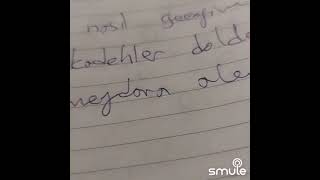 nasıl geçgin
kadehler dolde
meydana ale
smule